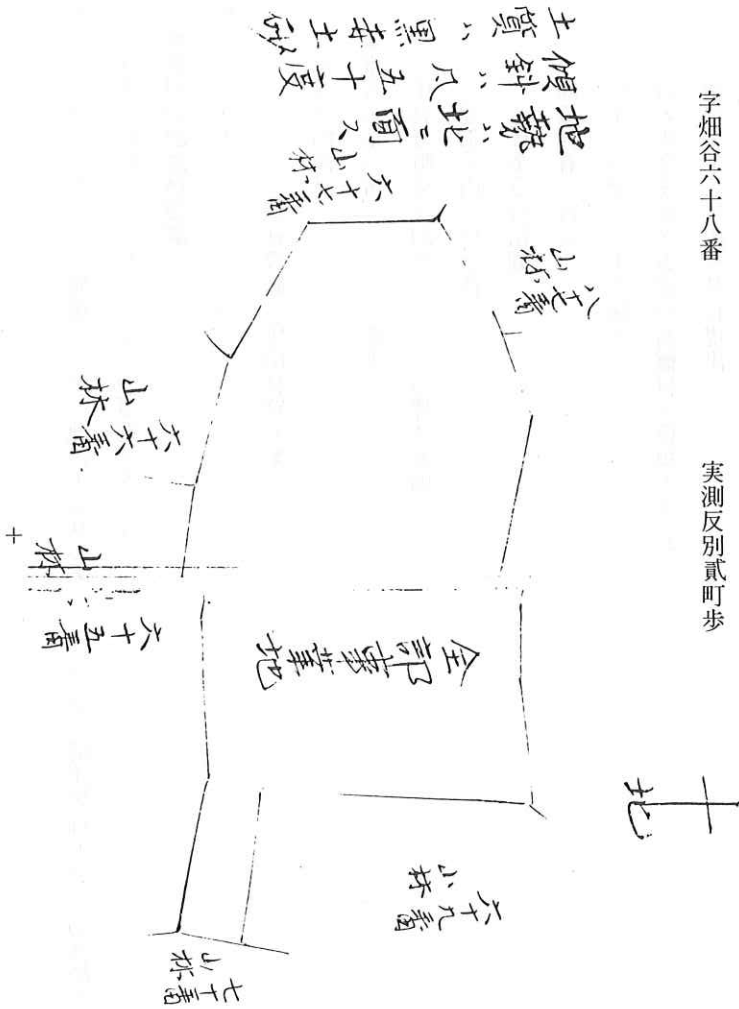 字畑谷六十八番　実測反別貳町歩
地勢ハ北ニ面ス
傾斜ハ凡五十度
土質ハ黒赤土砂
六十七番
山林
八十七番
山林
六十六番
山林
山林
六十五番
全部事業地
北
六十九番
山林
七十番
山林